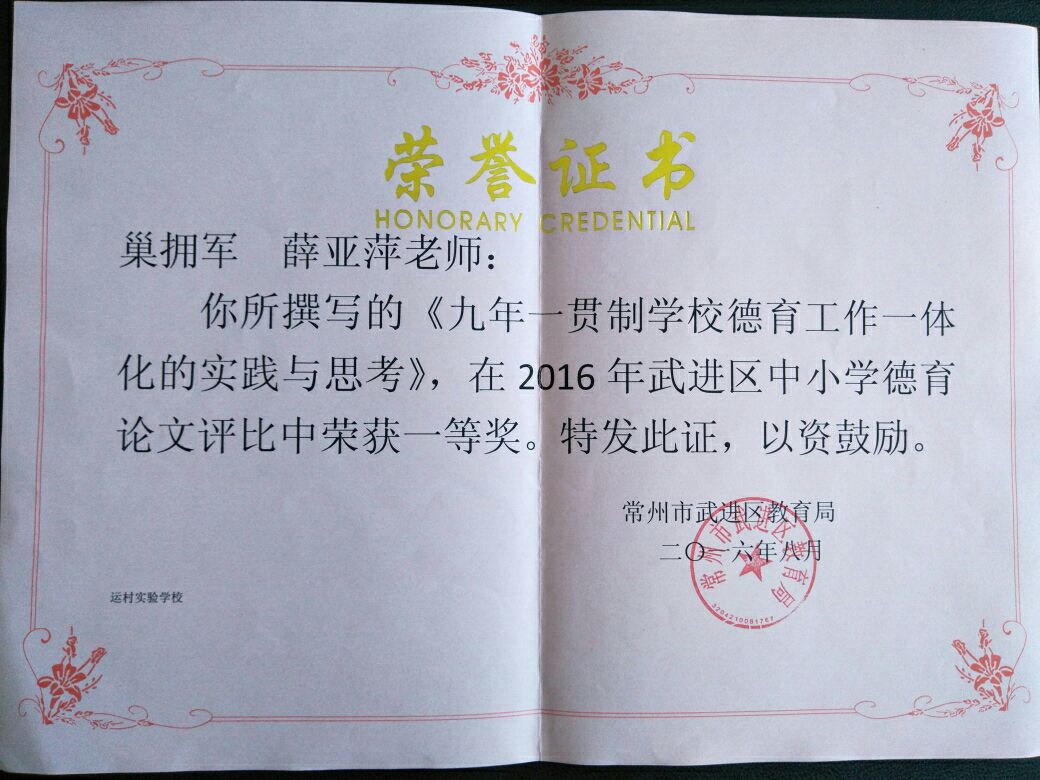 荣誉证书
HONORARY CREDENTIAL
巢拥军　薛亚萍老师：
你所撰写的《九年一贯制学校德育工作一体
化的实践与思考》，在 2016 年武进区中小学德育
论文评比中荣获一等奖。特发此证，以资鼓励。
常州市武进区教育局
二〇一六年八月
常州市武进区教育局
3204210081767
运村实验学校